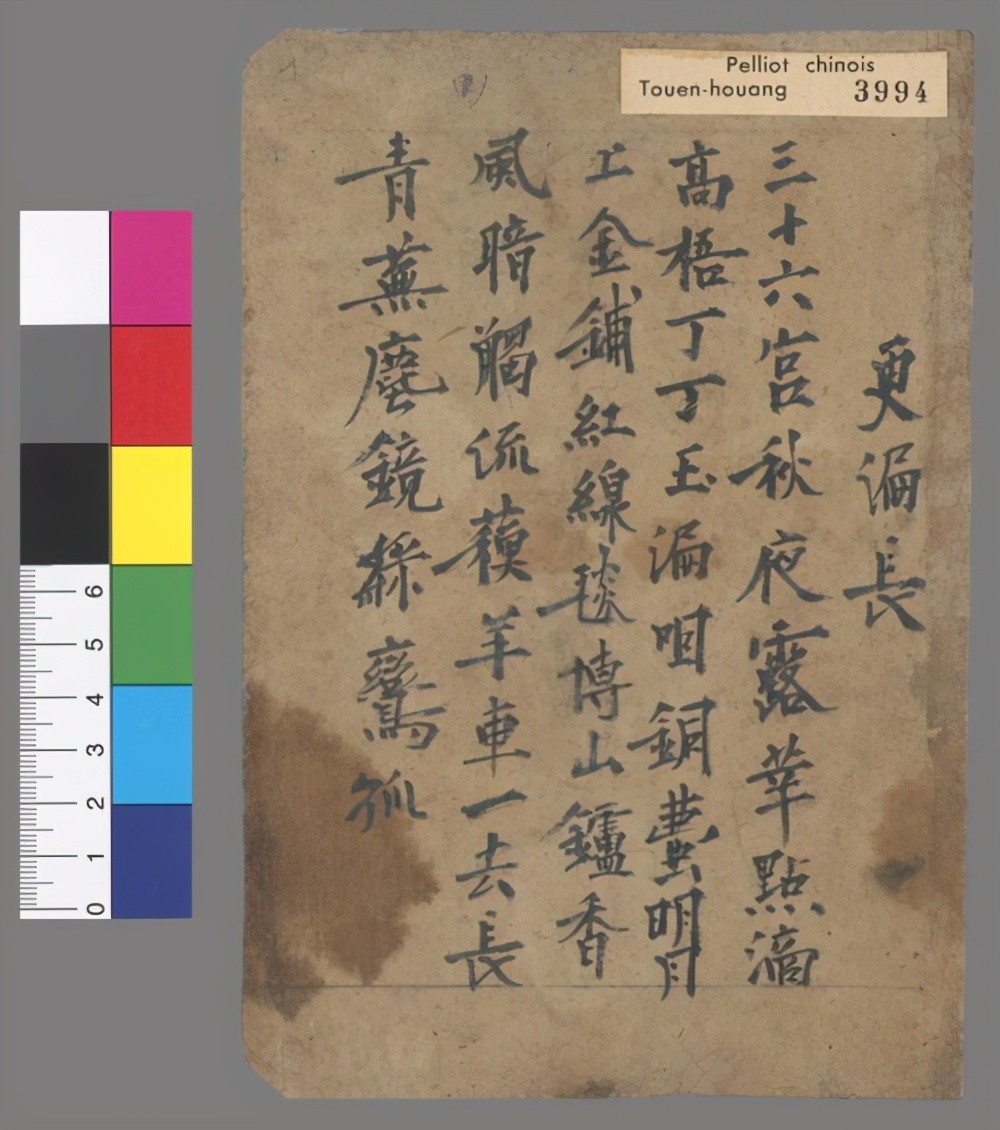 Pelliot chinois
Touen-houang 3994
更漏長
三十六宮秋夜永露華點滴
高梧丁丁玉漏咽銅壺明月
上金鋪紅線毯博山鑪香
風暗觸流蘇羊車一去長
青蕪塵鏡綵鸞孤
6
5
4
3
2
1
0